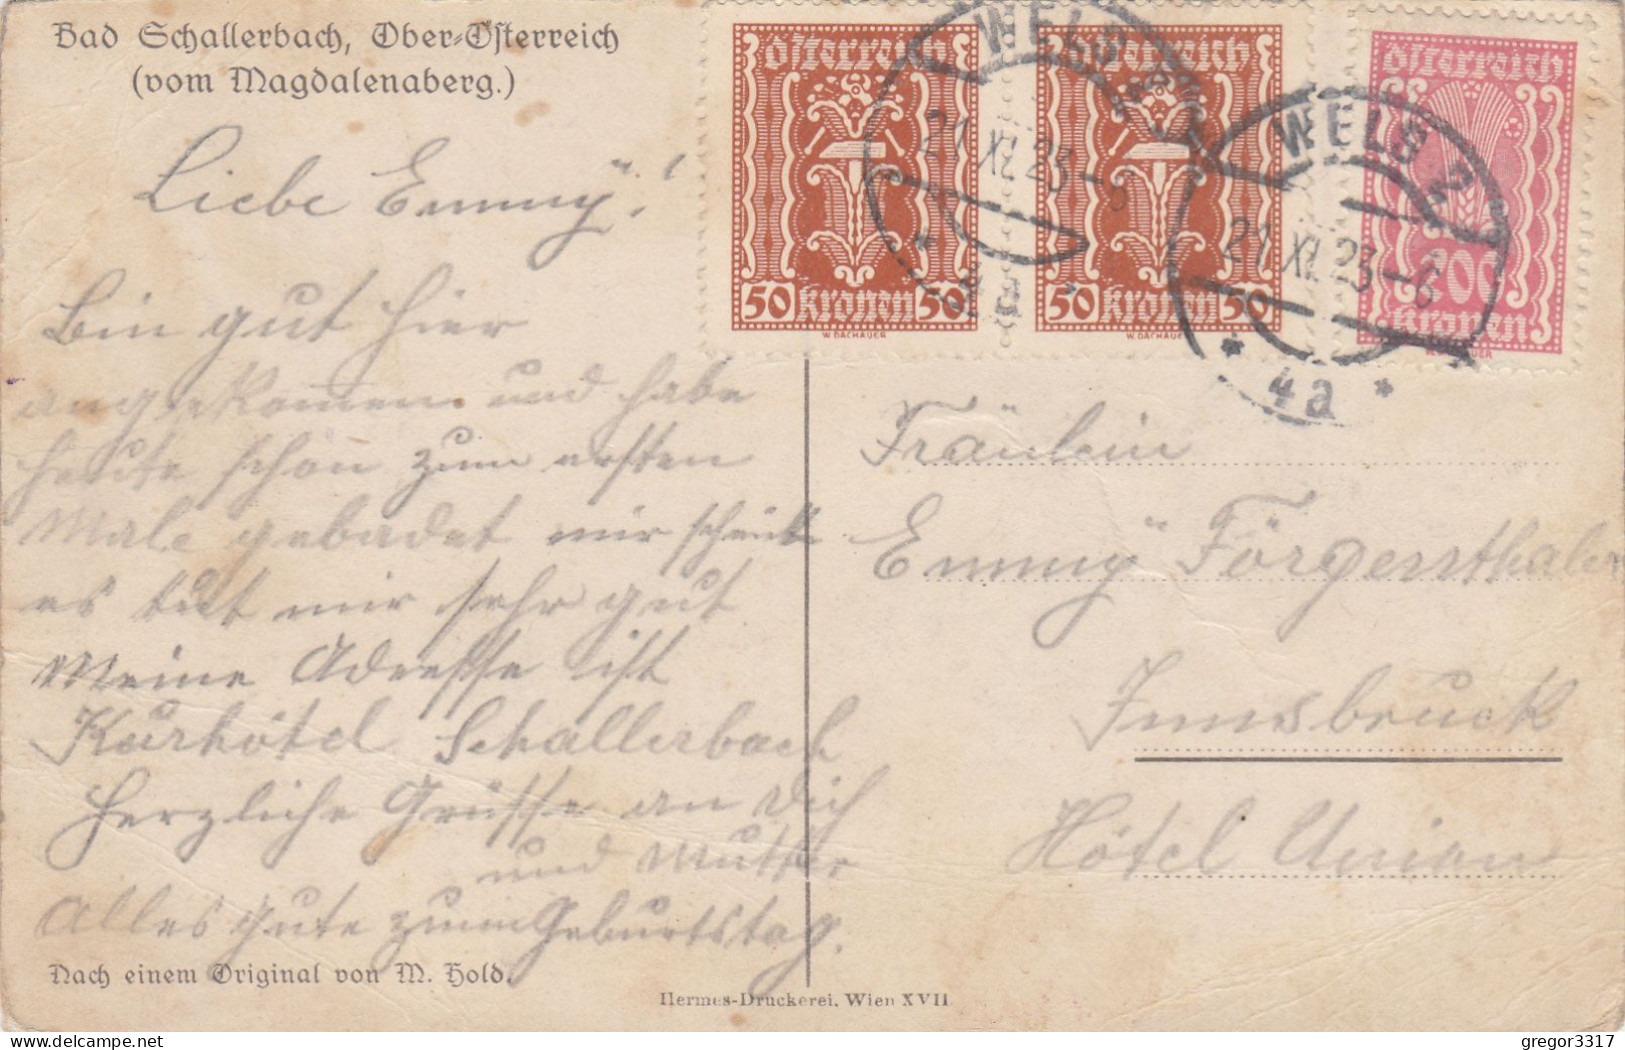 Bad Schallerbach, Ober-Österreich
(vom Magdalenaberg.)
Liebe Emmÿ!
Bin gut hier
angekommen und habe
heute schon zum ersten
Male gebadet mir scheint
es tut mir sehr gut
Meine Adresse ist
Kurhôtel Schallerbach
Herzliche Grüsse an Dich
und Mutter
Alles gute zum Geburtstag.
Nach einem Original von M. Hold.
Hermes-Druckerei, Wien XVII
österreich
50 Kronen 50
W. DACHAUER
österreich
50 Kronen 50
W. DACHAUER
österreich
200
Kronen
WELS 2
21 XI 23-6
* 4a
WELS 2
21 XI 23-6
* 4a *
Fräulein
Emmÿ Förgensthaler
Innsbruck
Hôtel Union
gregor3317
delcampe.net